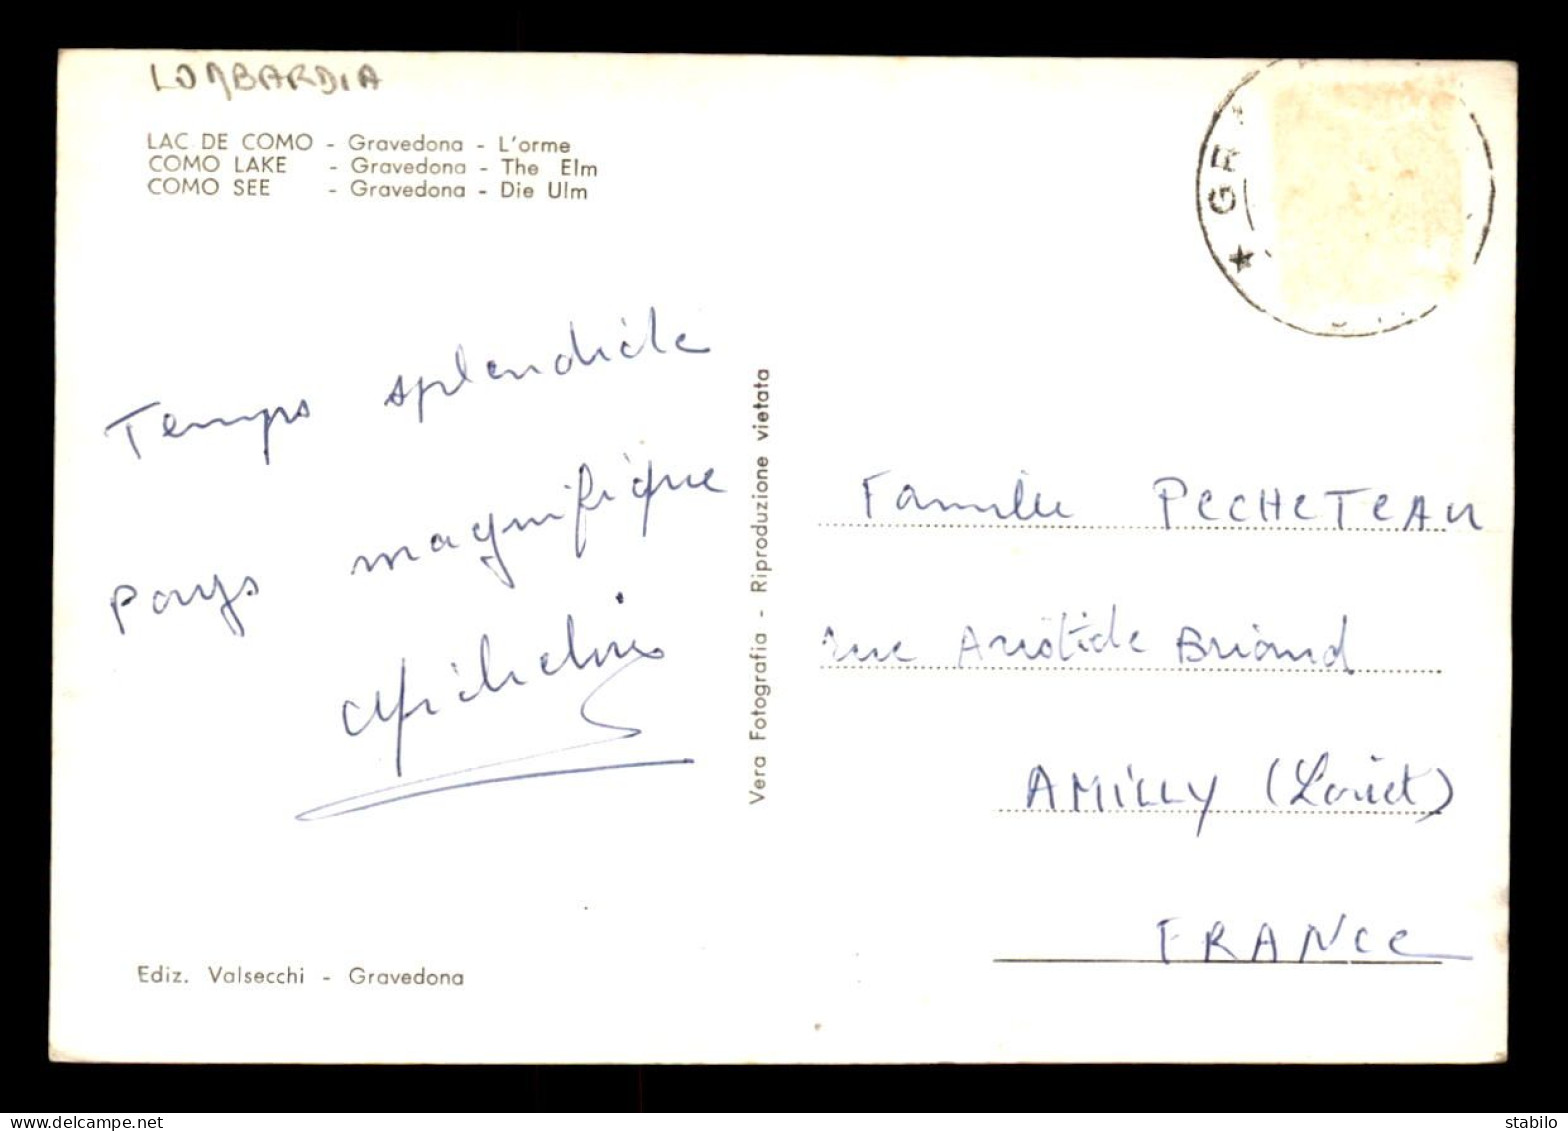 LOMBARDIA
LAC DE COMO - Gravedona - L'orme
COMO LAKE - Gravedona - The Elm
COMO SEE - Gravedona - Die Ulm
★ GR
Temps splendide
Pays magnifique
Ediz. Valsecchi - Gravedona
Vera Fotografia - Riproduzione vietata
Famille PECHETEAU
rue Aristide Briand
AMILLY (Loiret)
FRANCE
delcampe.net
stabilo